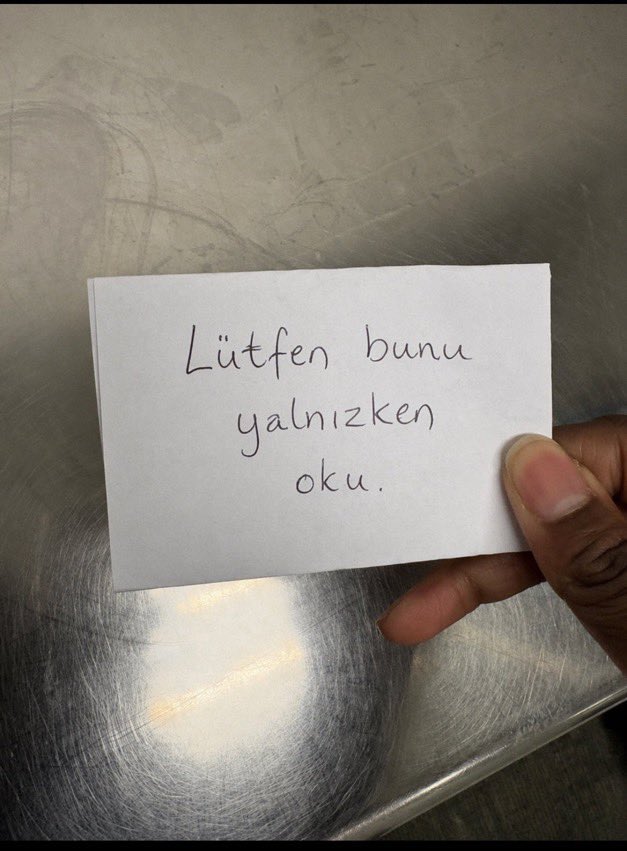 Lütfen bunu
yalnızken
oku.